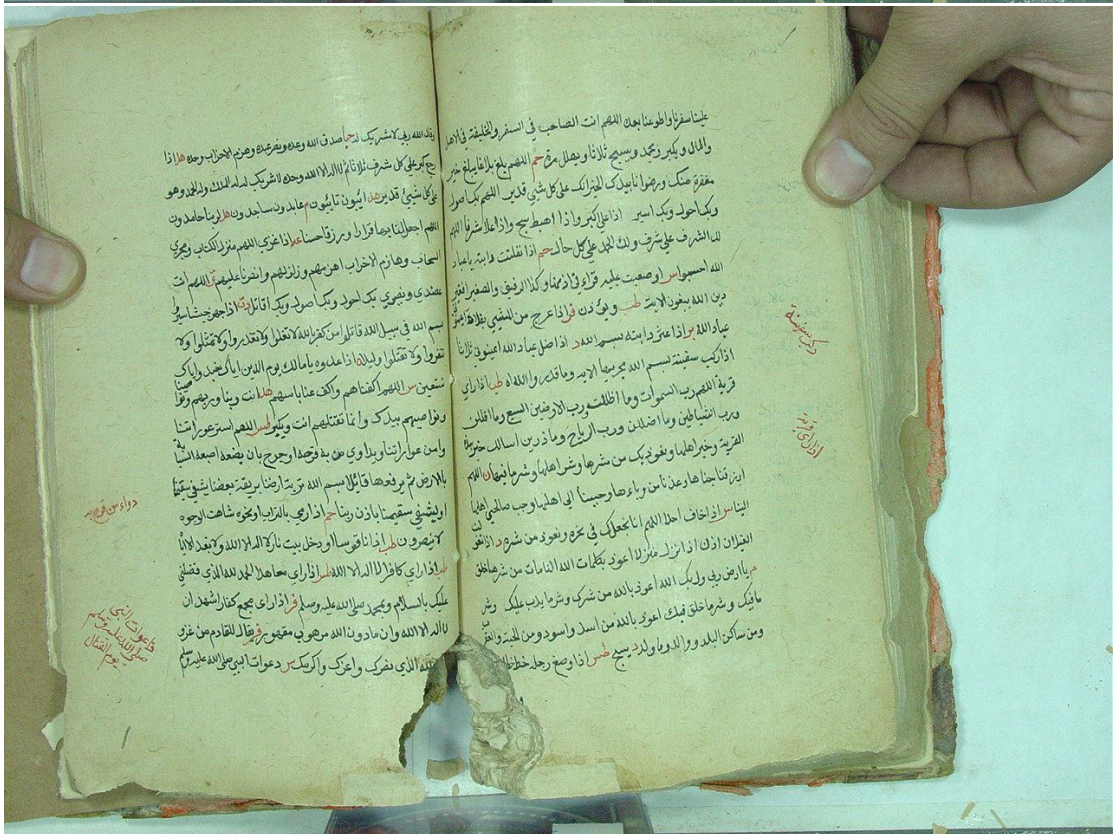 علينا سفرنا واطو عنا بعده اللهم انت الصاحب في السفر والخليفة في الاهل
والمال ويكبر ويحمد ويسبح ثلاثا ويهلل مرة حم اللهم بلغ بلاغا يبلغ خير
مغفرة منك ورضوانا بيدك الخير انك على كل شيئ قدير اللهم بك اصول
وبك احول وبك اسير اذا على اكبر واذا اهبط سبح واذا علا شرفا اللهم
لك الشرف على شرف ولك الحمد على كل حال حم اذا نفلتت دابته يا عباد
الله احبسوا س او صعبت عليه قراء في اذنها وكذا الرقيق والصغير افغير
دين الله يبغون الاية طب ويؤذن
عباد الله بر اذا عثر دابته بسم الله اذا ضل عباد الله اعينوني ثلاثا
اذا ركب سفينة بسم الله مجريها الاية وما قدروا الله طب اذا راى
قرية اللهم رب السموات وما اظللت ورب الارضين السبع وما اقللن
ورب الشياطين وما اضللن ورب الرياح وما ذرين اسالك خير
القرية وخير اهلها ونعوذ بك من شرها وشر اهلها وشر ما فيها اللهم
ارزقنا جناها واعذنا من وباءها وحببنا الى اهلها وحب صالحي اهلها
الينا س اذا خاف احدا اللهم انا نجعلك في نحره ونعوذ من شره د
الغيلان اذن اذا نزل منزلا اعوذ بكلمات الله التامات من شر ما خلق
م يا ارض ربي وربك الله اعوذ بالله من شرك وشر ما يدب عليك وشر
ما فيك وشر ما خلق فيك اعوذ بالله من اسد واسود ومن الحية والعقرب
ومن ساكن البلد ووالد وما ولد د يسبح طس اذا وضع رجله
ركب سفينة
اذا راى قرية
وقال الله ربي لا شريك له حا صدق الله وعده ونصر عبده وهزم الاحزاب وحده اذا
رجع كبر على كل شرف ثلاثا ثم لا اله الا الله وحده لا شريك له له الملك وله الحمد وهو
على كل شيئ قدير آئبون تائبون عابدون ساجدون لربنا حامدون
اللهم اجعل لنا بها قرارا ورزقا حسنا اذا غزى اللهم منزل الكتاب ومجري
السحاب وهازم الاحزاب اهزمهم وزلزلهم وانصرنا عليهم اللهم انت
عضدي ونصيري بك احول وبك اصول وبك اقاتل اذا جهز جيشا
بسم الله في سبيل الله قاتلوا من كفر بالله لا تغلوا ولا تغدروا ولا تمثلوا ولا
تنفروا ولا تقتلوا وليدا اذا عدوه يا مالك يوم الدين اياك نعبد واياك
نستعين س اللهم اكفناهم واكف عنا باسهم انت ربنا وربهم
ونواصيهم بيدك وانما تقتلهم انت طس اللهم استر عوراتنا
وامن روعاتنا ويداوى من به قرحة او جرح بان يضع اصبعه السبابة
بالارض ثم يرفعها قائلا بسم الله تربة ارضنا بريقة بعضنا يشفى سقيمنا
او ليشفي سقيمنا باذن ربنا حم اذا رمى بالتراب ونحوه شاهت الوجوه
لا ينصرون طب اذا راى كافرا لا اله الا الله اذا راى معاهدا الحمد لله الذي فضلني
عليك بالاسلام وبمحمد صلى الله عليه وسلم اذا راى مجمع كفار اشهد ان
لا اله الا الله وان ما دون الله مربوب مقهور يقال للقادم من غزو
لله الذي نصرك واعزك واكرمك س دعوات النبي صلى الله عليه وسلم
دواء من قرح به
دعوات النبي
صلى الله عليه وسلم
يوم القتال